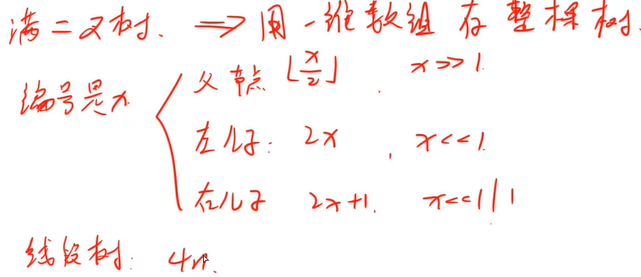 满二叉树. ⇒ 用一维数组存整棵树.
编号是x
父节点 ⌊x/2⌋ . x>>1.
左儿子: 2x , x<<1.
右儿子 2x+1. x<<1|1
线段树: 4n.